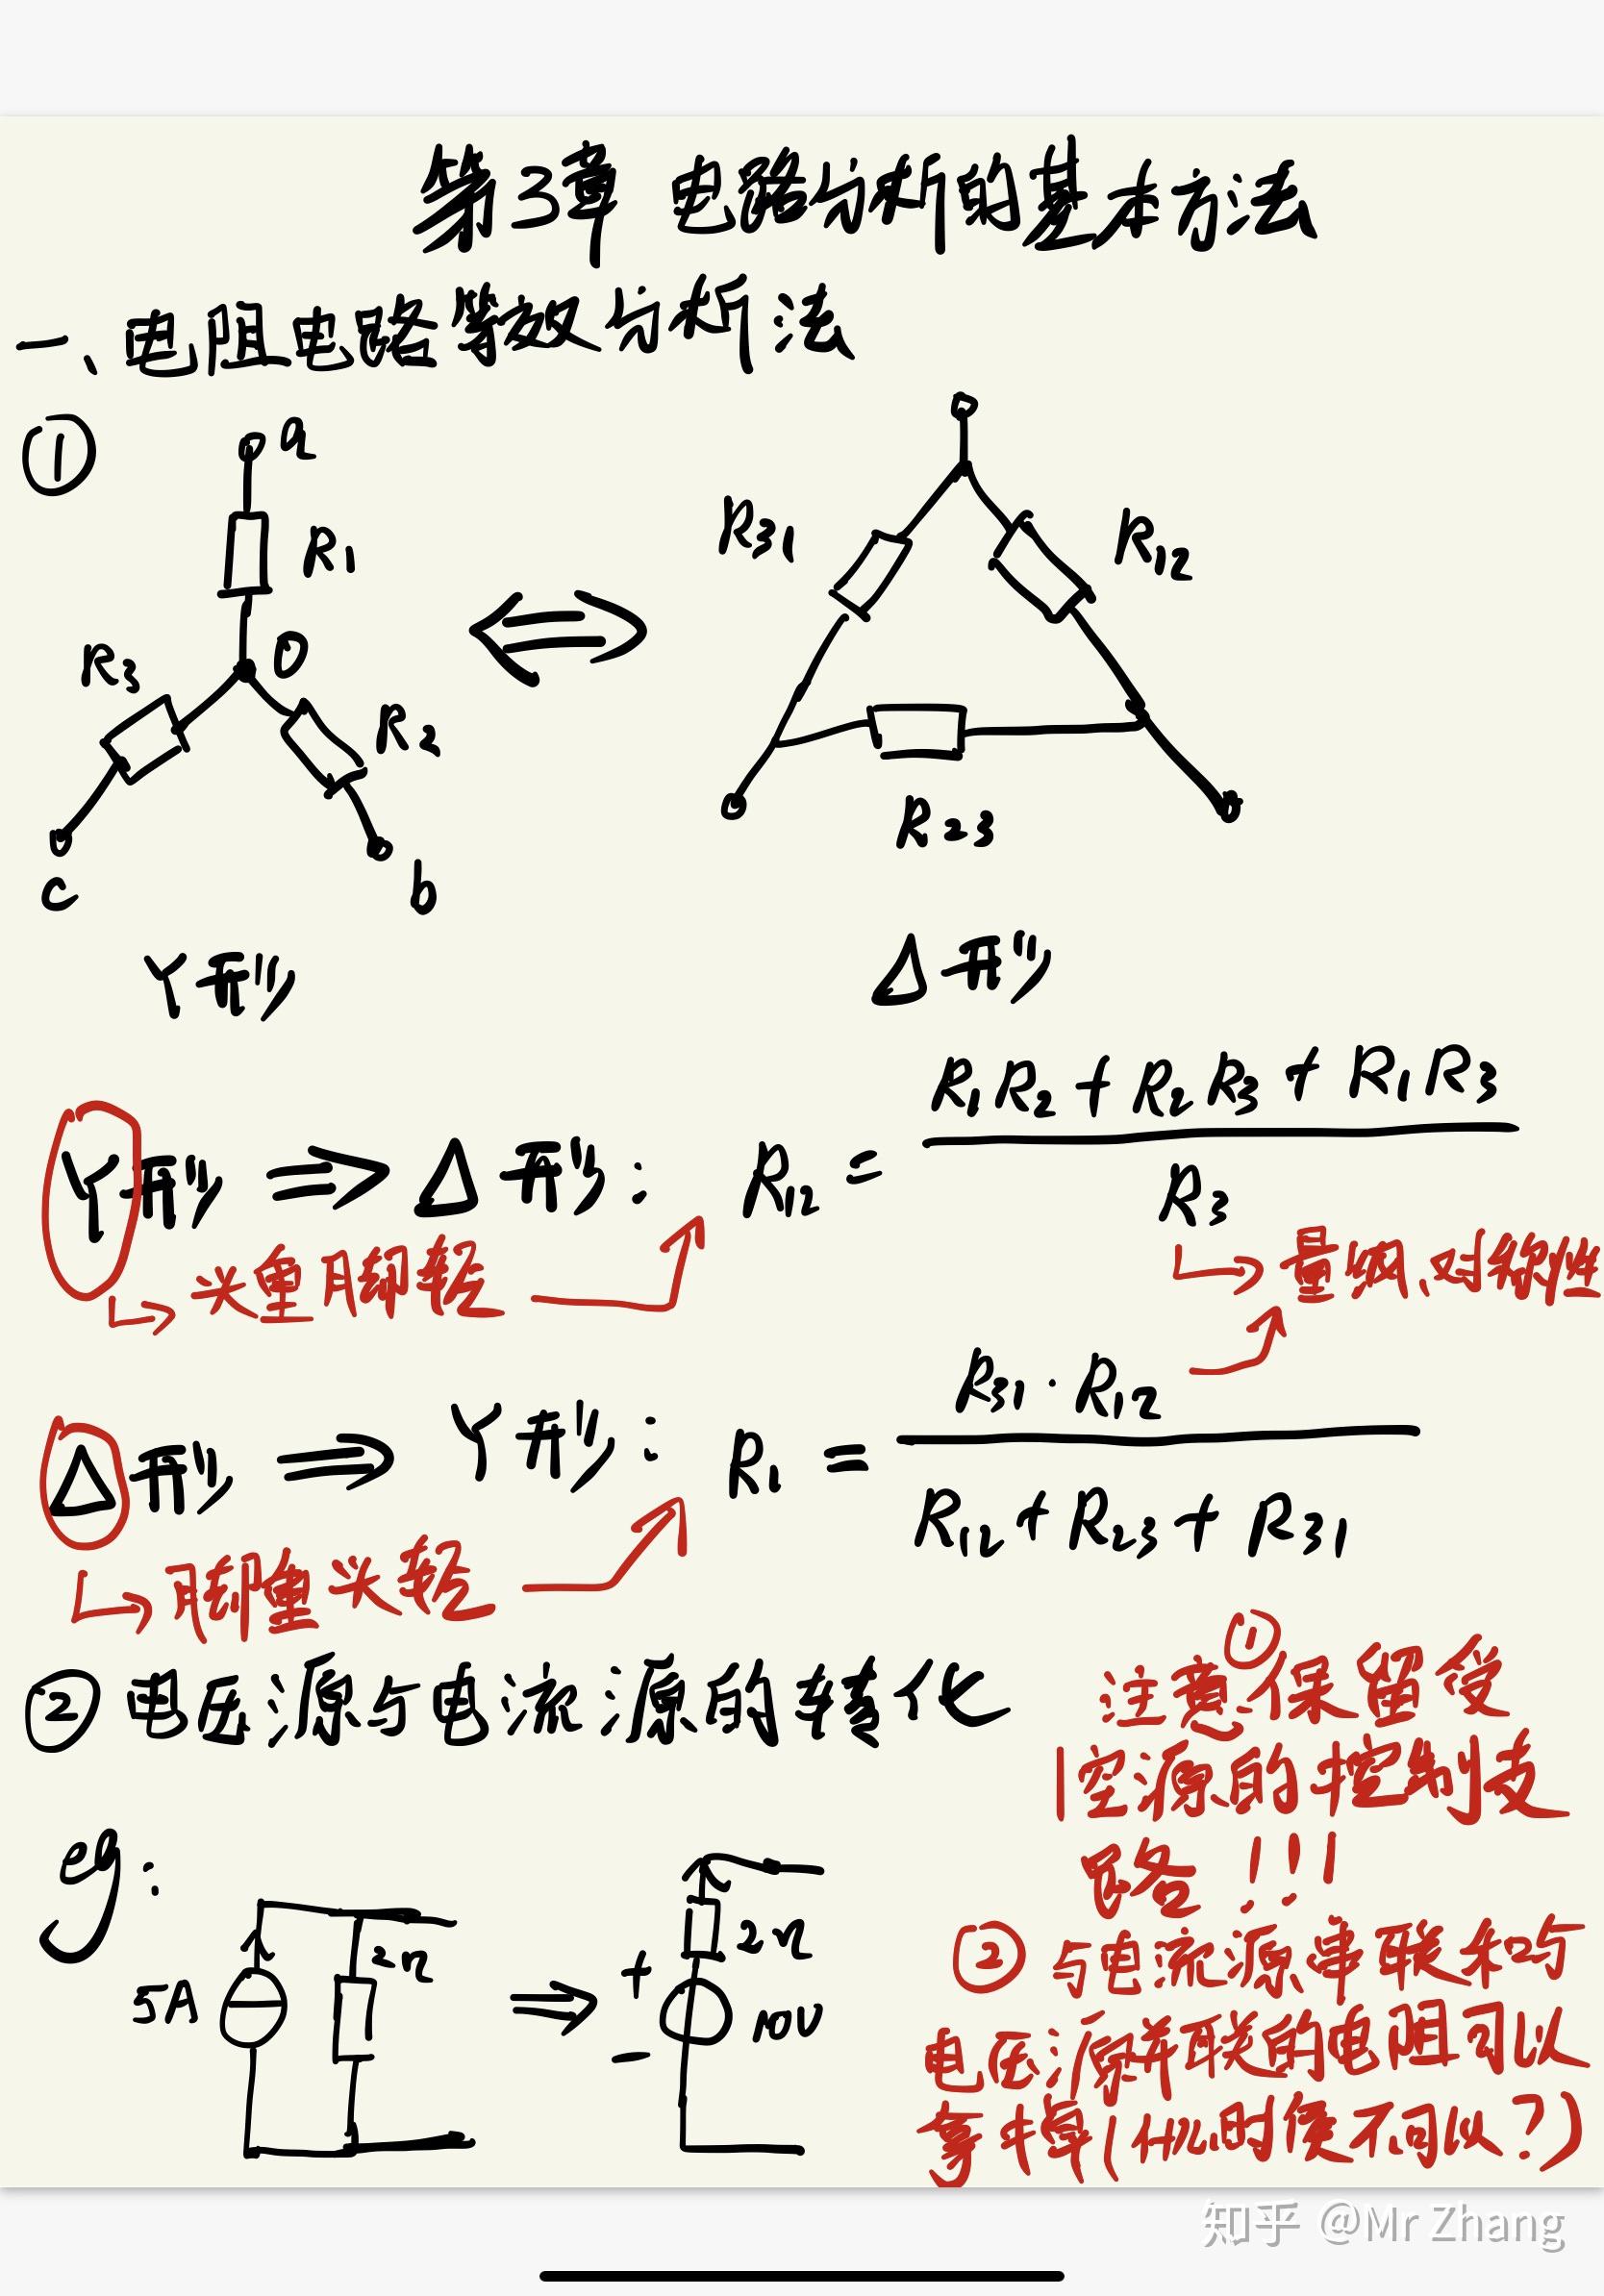 第3章 电路分析的基本方法
一、电阻电路等效分析法
①
a
R1
R3
O
R2
c
b
Y形
R31
R12
R23
△形
Y形 ⇒ △形: R12 = (R1R2 + R2R3 + R1R3) / R3
↳ 头重脚轻
↳ 量纲、对称性
△形 ⇒ Y形: R1 = (R31 · R12) / (R12 + R23 + R31)
↳ 脚重头轻
② 电压源与电流源的转化
注意①保留受
控源的控制支
路!!!
② 与电流源串联和与
电压源并联的电阻可以
拿掉(什么时候不可以?)
eg:
5A
2Ω
⇒
+
2Ω
10V
-
知乎 @Mr Zhang